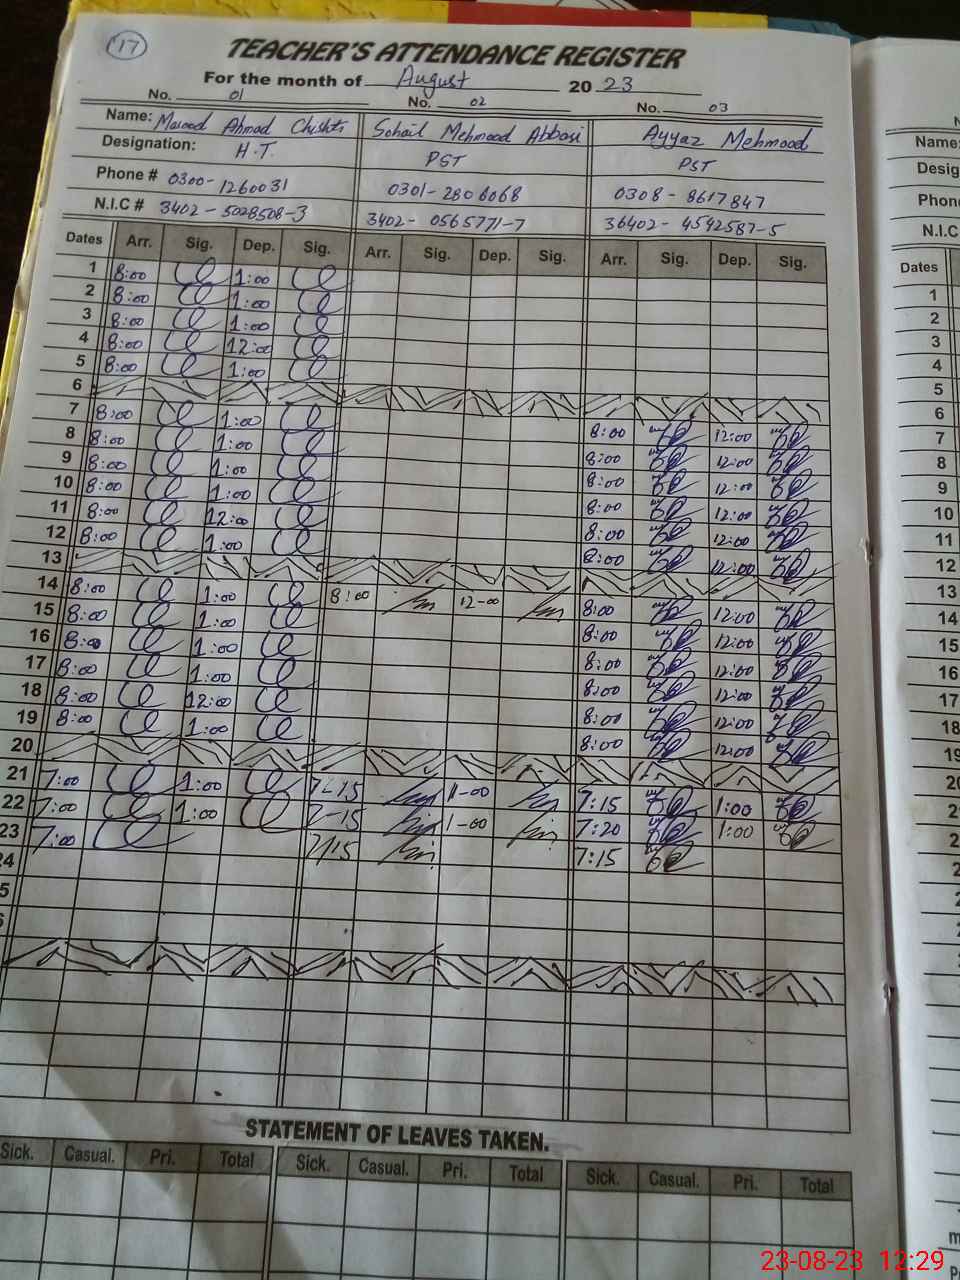 17
TEACHER'S ATTENDANCE REGISTER
For the month of August 2023
No. 01 No. 02 No. 03
Name: Masood Ahmad Chishti Sohail Mehmood Abbasi Ayyaz Mehmood
Designation: H.T. PST PST
Phone # 0300-1260031 0301-2806068 0308-8617847
N.I.C # 3402-5028508-3 3402-0565771-7 36402-4542587-5
Dates Arr. Sig. Dep. Sig. Arr. Sig. Dep. Sig. Arr. Sig. Dep. Sig.
1 8:00 1:00
2 8:00 1:00
3 8:00 1:00
4 8:00 12:00
5 8:00 1:00
6
7 8:00 1:00 8:00 12:00
8 8:00 1:00 8:00 12:00
9 8:00 1:00 8:00 12:00
10 8:00 1:00 8:00 12:00
11 8:00 12:00 8:00 12:00
12 8:00 1:00 8:00 12:00
13
14 8:00 1:00 8:00 12-00 8:00 12:00
15 8:00 1:00 8:00 12:00
16 8:00 1:00 8:00 12:00
17 8:00 1:00 8:00 12:00
18 8:00 12:00 8:00 12:00
19 8:00 1:00 8:00 12:00
20
21 7:00 1:00 7-15 1-00 7:15 1:00
22 7:00 1:00 7-15 1-00 7:20 1:00
23 7:00 7/15 7:15
24
5
6
STATEMENT OF LEAVES TAKEN.
Sick. Casual. Pri. Total Sick. Casual. Pri. Total Sick. Casual. Pri. Total
Name:
Desig
Phone
N.I.C
Dates
1
2
3
4
5
6
7
8
9
10
11
12
13
14
15
16
17
18
19
20
23-08-23 12:29